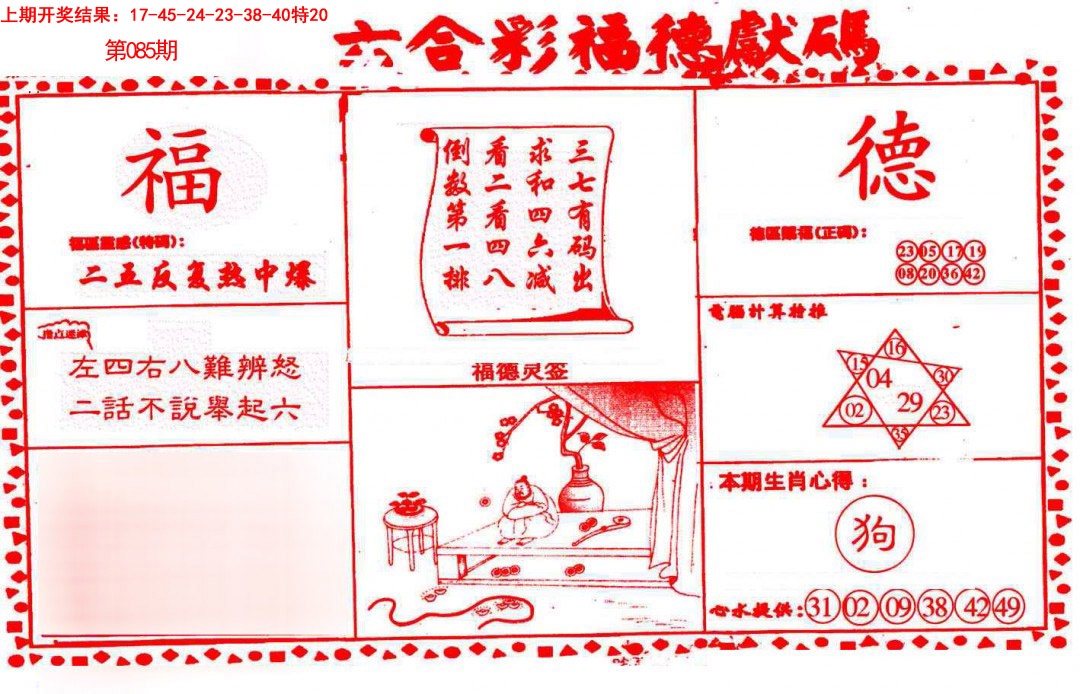 上期开奖结果：17-45-24-23-38-40特20
第085期
六合彩福德獻碼
福
福區靈感(特碼)：
二五反复热中爆
指点迷津
左四右八難辨怒
二話不說舉起六
三七有码出
求和四六减
看二看四八
倒数第一排
福德灵签
德
德區賜福(正碼)：
23 05 17 19
08 20 36 42
電腦計算檢推
16
15 30
04
02 29 23
35
本期生肖心得：
狗
心水提供：31 02 09 38 42 49